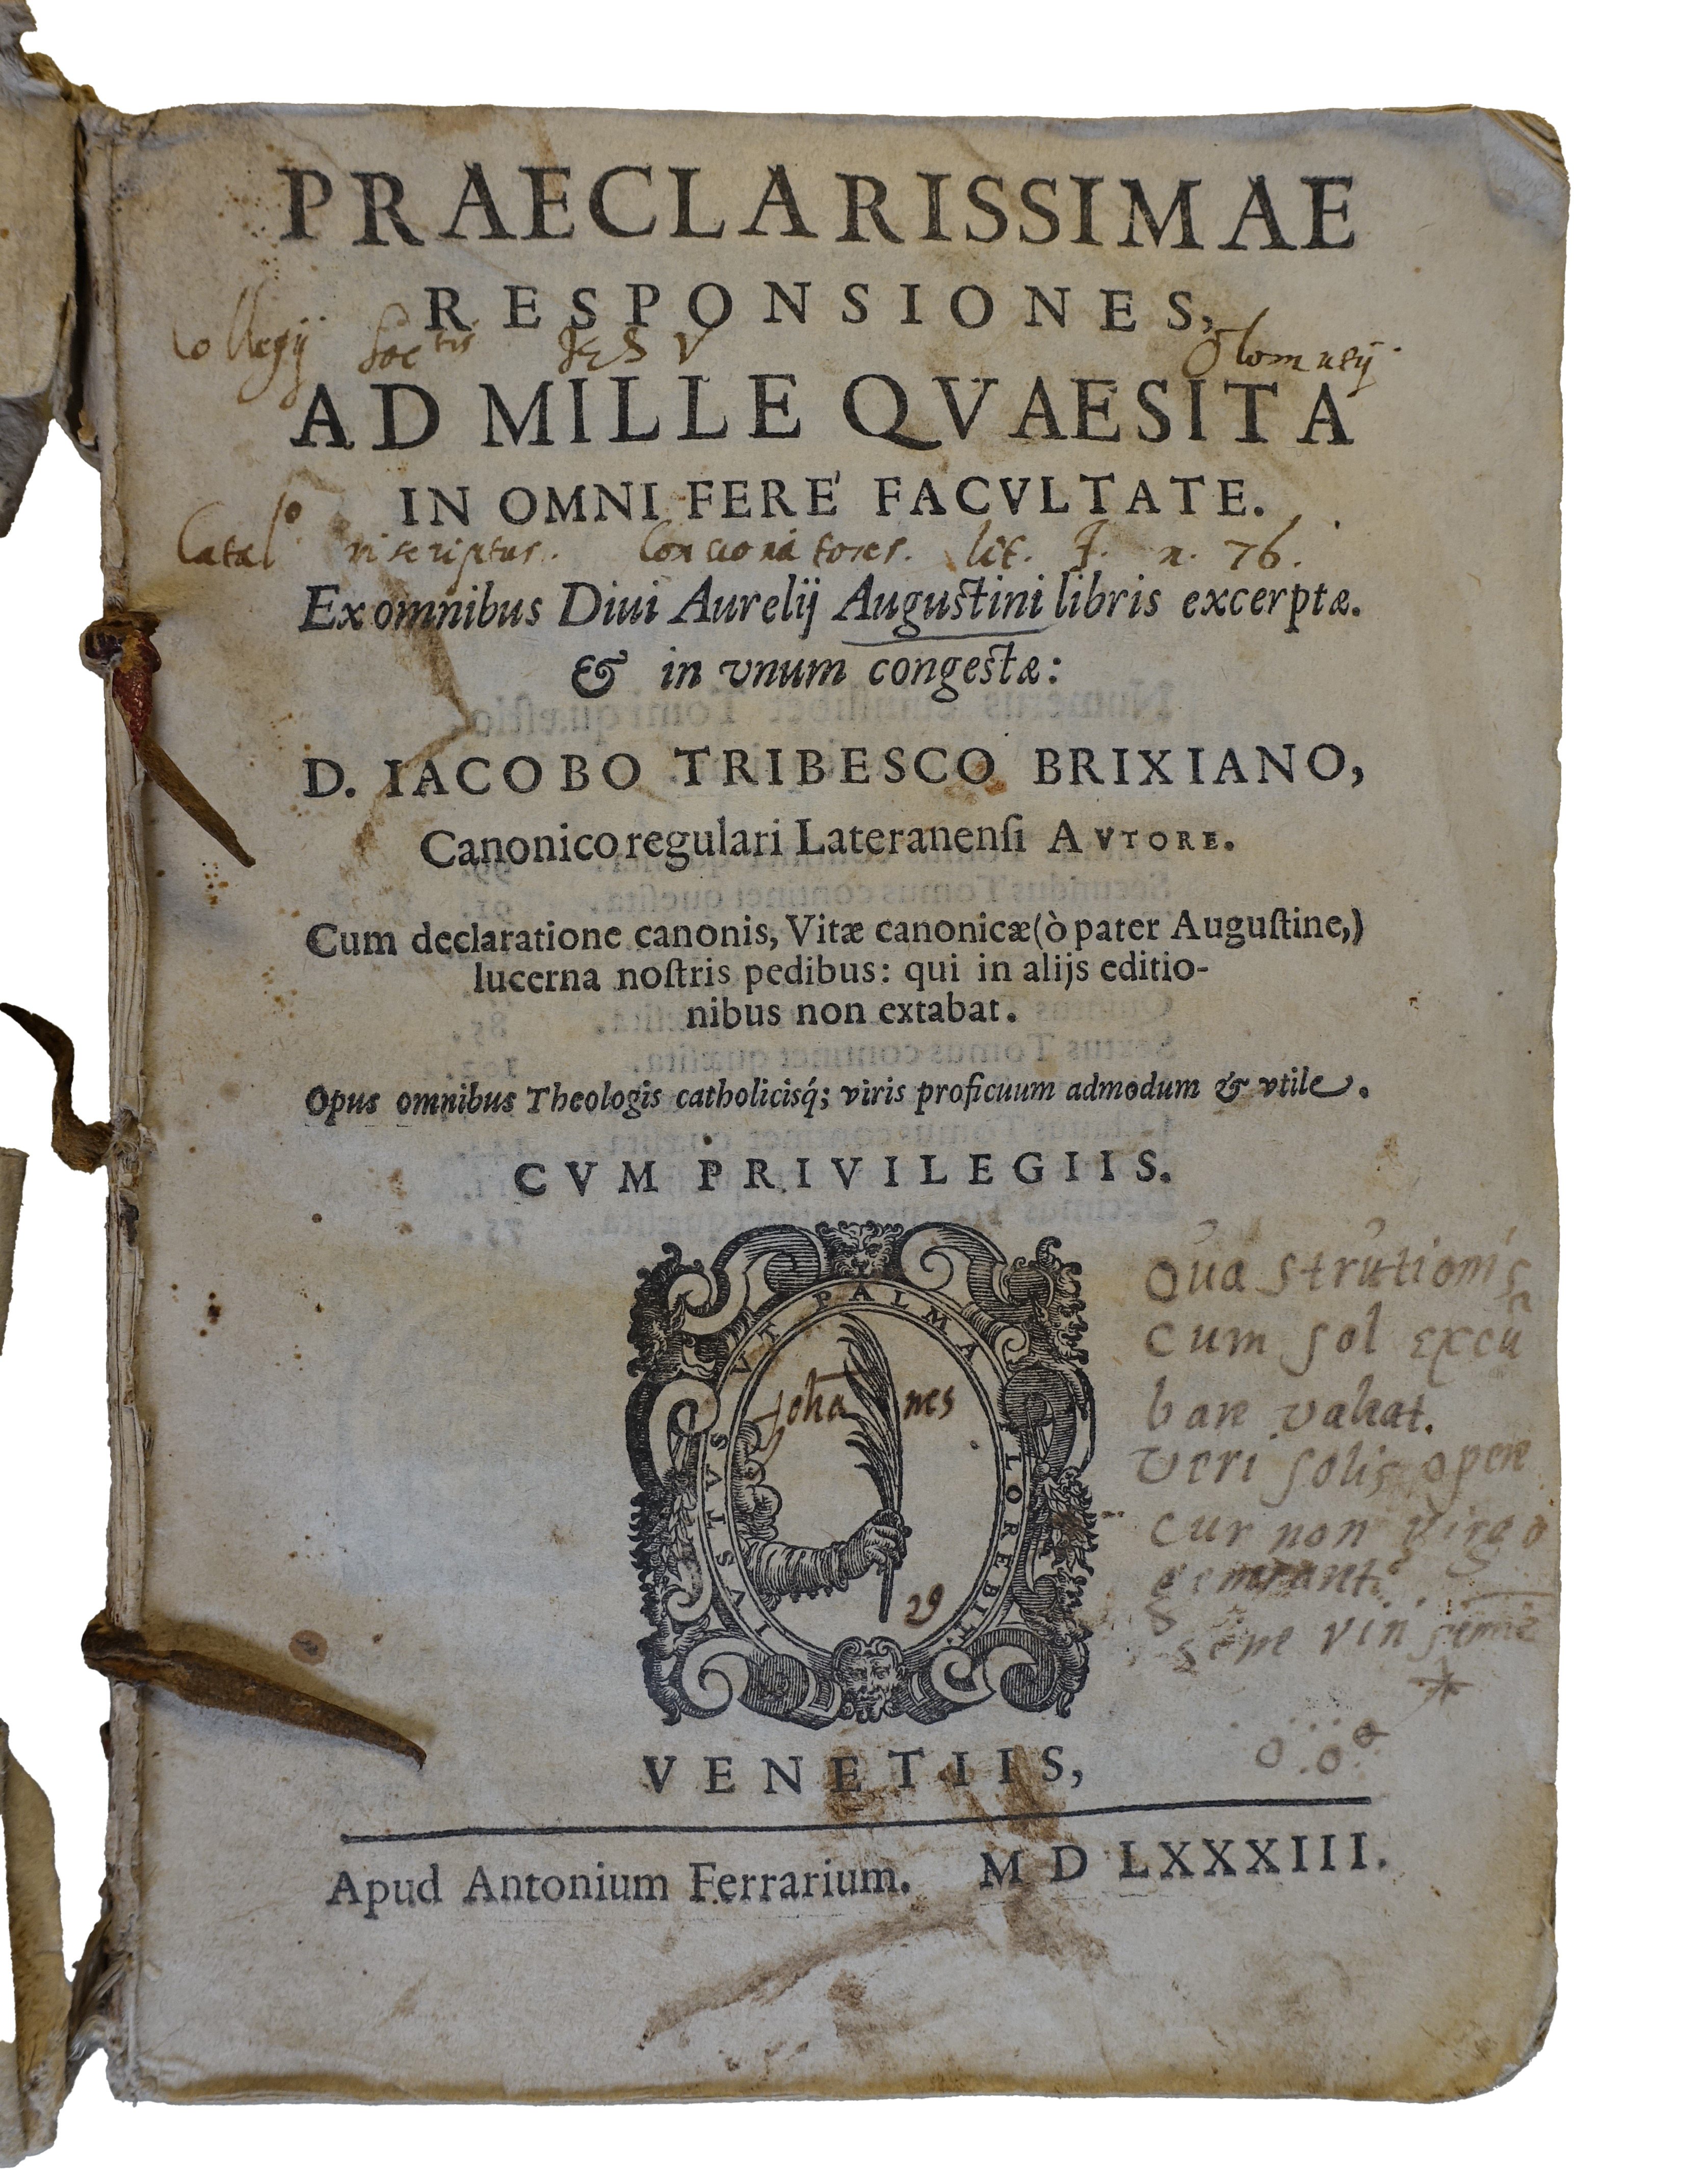 PRAECLARISSIMAE
RESPONSIONES,
Collegij Soctis IESV Olomucij.
AD MILLE QVAESITA
IN OMNI FERE' FACVLTATE.
Catalo. inscriptus. Concionatores. lit. J. n. 76.
Ex omnibus Diui Aurelij Augustini libris excerptæ.
& in vnum congestæ:
D. IACOBO TRIBESCO BRIXIANO,
Canonico regulari Lateranenſi AVTORE.
Cum declaratione canonis, Vitæ canonicæ (ò pater Auguſtine,)
lucerna noſtris pedibus: qui in alijs editio-
nibus non extabat.
Opus omnibus Theologis catholicisq́; viris proficuum admodum & vtile.
CVM PRIVILEGIIS.
IVSTVS VT PALMA FLOREBIT.
Joha nes
29
Oua strutionis
cum sol excu
bare valeat.
veri solis opere
cur non virgo
generaret?
sine viri semine
VENETIIS,
Apud Antonium Ferrarium. M D LXXXIII.